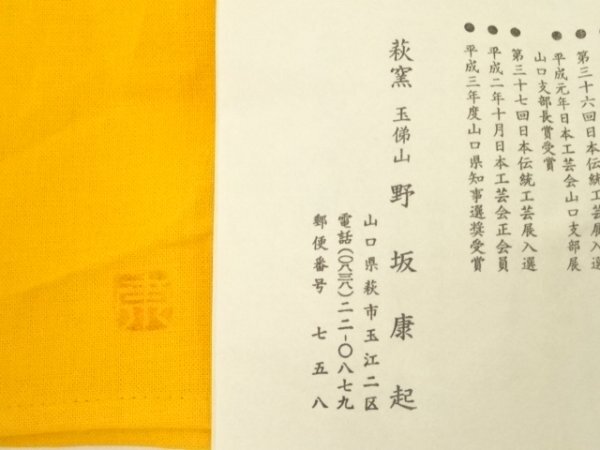 第三十六回日本伝統工芸展入選
平成元年日本工芸会山口支部展
山口支部長賞受賞
第三十七回日本伝統工芸展入選
平成二年十月日本工芸会正会員
平成三年度山口県知事選奨受賞
萩窯 玉俤山 野坂康起
山口県萩市玉江二区
電話(〇八三八)二二ー〇八七九
郵便番号 七五八